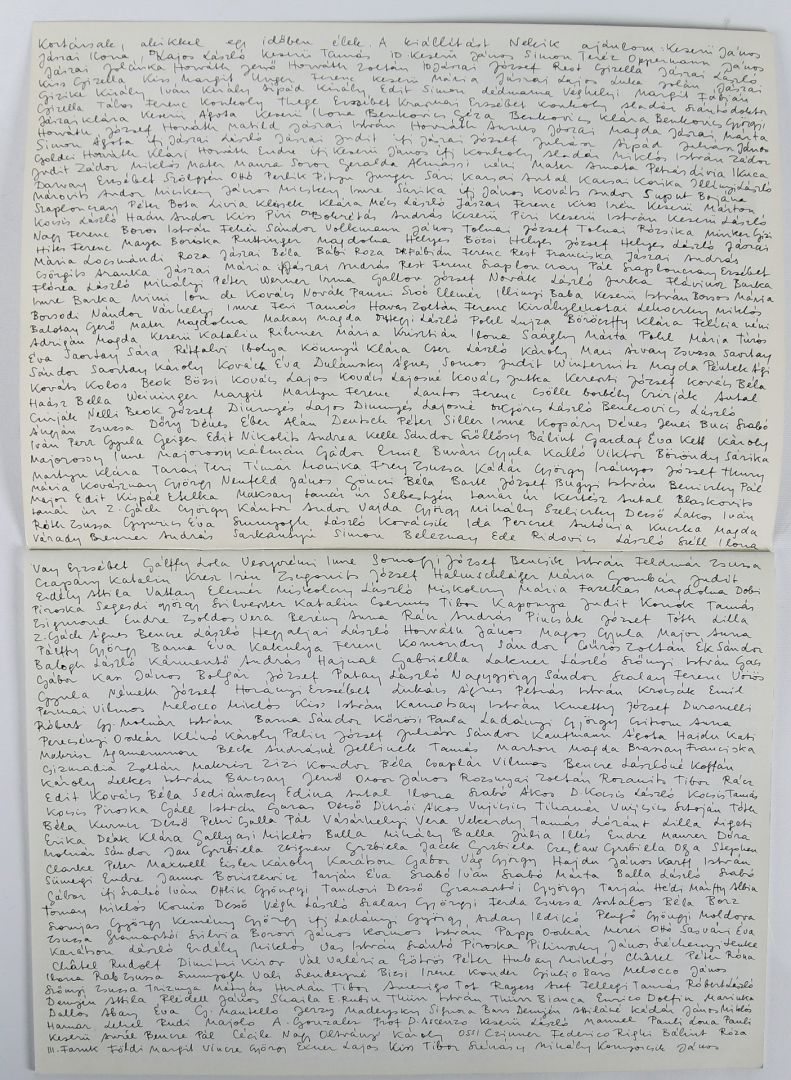 Kortársak, akikkel egy időben élek. A kiállítást Nekik ajánlom: Keserü János
Jászai Ilona Lajos László Keserü Tamás ID. Keserü János Simon Teréz Oppermann János
Jászai Jolánka Horváth Jenő Horváth Zoltán ID Jászai József Rest Gizella Jászai László
Kiss Gizella Kiss Margit Unger Ferenc Keserü Mária Jászai Lajos Luka Jolán Jászai
Gizike Király Iván Király Árpád Király Edit Simon Margit Fábián
Gizella Tábos Ferenc Konkoly Thege Erzsébet Krasznai Erzsébet Konkoly Aladár
Jászai Klára Keserü Ágota Keserü Ilona Benkovics Géza Benkovics Klára Benkovics György
Horváth József Horváth Matild Jászai István Horváth Annus Jászai Magda Jászai Márta
Simon Ágota ifj Jászai László Jászai Judit ifj Jászai József Juhász Árpád Juhász János
Horváth Klári Horváth Endre ifj Keserü János ifj Konkoly Aladár Miklós István Zádor
Judit Zádor Miklós Mater Maura Soror Geralda Almássi néni Mater Amata Petrás Livia
Darvany Erzsébet Szőllősi Ottó Perlik Pityu Junger Sári Kassai Antal Kassai Korika Illinyi László
Márovits Andor Micskey János Micskey Imre Sárika ifj János Kováts Andor Suput Bojána
Szaploncay Péter Bota Livia Klósek Klára Mécs László Jászai Ferenc Kiss Irén Keserü Márton
Kocsis László Haán Andor Kiss Piri Bokrétás András Keserü Piri Keserü István Keserü László
Nagy Ferenc Boros István Fehér Sándor Volkmann János Tolnai József Tolnai Rózsika Minker Gizi
Hites Ferenc Mayer Boriska Ruttinger Magdolna Helyes Bözsi Helyes József Helyes László Jászai
Mária Locsmándi Roza Jászai Béla Bábi Roza DR Fábián Ferenc Rest Franciska Jászai András
Csörgits Aranka Jászai Mária ifj Jászai András Rest Ferenc Szaploncay Pál Szaploncay Erzsébet
Flórea László Mihályi Péter Werner Irma Gallov József Novák László Jurka Flávinsz Barka
Imre Barka Mimi Ion de Kovás Novák Panni Soó Elemér Illinyi Baba Keserü István Boros Mária
Borsodi Nándor Várhelyi Imre Fári Tamás Havas Zoltán Ferenc Királylehotai Lehoczky Miklós
Balotay Gerő Mater Magdolna Makay Magda László Pohl Lujza Böröczffy Klára Felicia néni
Adrigán Magda Keserü Katalin Rihmer Mária Krisztián Ilona Saághy Márta Pohl Mária Túrós
Éva Saortay Sára Rétfalvi Ibolya Könnyü Klára Cser László Károly Mari Arvay Zsuzsa Saortay
Sándor Saortay Károly Kovách Éva Dulánszky Ágnes Somos Judit Winternitz Magda Péntek Ági
Kováts Kolos Beok Bözsi Kovács Lajos Kovács Lajosné Kovács Jutka Kereszti József Kovács Béla
Haász Bella Weininger Margit Martyn Ferenc Lantos Ferenc Csölle Borbély Csirják Antal
Csirják Nelli Beok József Dinnyés Lajos Dinnyés Lajosné Dr Görcs László Benkovics László
Angyán Zsuzsa Döry Dénes Éber Alán Deutsch Péter Siller Imre Kopány Dénes Jenei Buci Szabó
Iván Perr Gyula Geiger Edit Nikolits Andrea Kelle Sándor Szőllősy Bálint Gazdag Éva Kett Károly
Majorossy Imre Majorossy Kálmán Gádor Emil Buvári Gyula Kalló Viktor Böröndy Sárika
Martyn Klára Tarai Teri Tímár Mónika Frey Zsuzsa Kádár György Irányos József Thury
Mária Kovásznay György Neufeld János Gönczi Béla Bartl József Bugyi István Beniczky Pál
Major Edit Kispál Etelka Maksay tanár úr Sebestyén tanár úr Kertész Antal Blaskovits
tanár úr Z. Gács György Kántor Andor Vajda György Mihály Szeleczky Dezső Lakos Iván
Róth Zsuzsa Gyurics Éva Somogyh László Kovácsik Ida Perczel Antónia Kuczka Magda
Várady Brenner András Sarkantyú Simon Beleznay Ede Ridovics László Széll Ilona
Vay Erzsébet Gálffy Lola Veszprémi Imre Somogyi József Bencsik István Feldmár Zsuzsa
Czapáry Katalin Kresz Irén Zsugonits József Halmschláger Mária Gombár Judit
Erdély Attila Vattay Elemér Miskolczy László Miskolczy Mária Fazekas Magdolna Dobi
Piroska Segesdi György Szilvester Katalin Csernus Tibor Kaponya Judit Konok Tamás
Zsigmond Endre Zsoldos Vera Berény Anna Rác András Pincsák József Tóth Lilla
Z. Gács Ágnes Bencze László Hegyaljai László Horváth János Magos Gyula Major Anna
Pálffy György Barna Éva Kakulya Ferenc Komondy Sándor Csűrös Zoltán Ék Sándor
Balogh László Kármentő András Hajnal Gabriella Lakner László Szőnyi István Gacs
Gábor Kass János Bolgár József Patay László Nagygyörgy Sándor Szalay Ferenc Vörös
Gyula Németh József Horányi Erzsébet Lukács Ágnes Petrás István Krocsák Emil
Permai Vilmos Melocco Miklós Kiss István Kamotsay István Kmetty József Duronelli
Róbert Gy. Molnár István Barna Sándor Kőrösi Paula Ladányi György Csitrom Anna
Perecsényi Oszkár Klimó Károly Palicz József Juhász Sándor Kaufmann Ágota Hajdu Kati
Makrisz Agamemnon Beck Andrásné Jellinek Tamás Marton Magda Brassay Franciska
Csizmadia Zoltán Makrisz Zizi Kondor Béla Csaplár Vilmos Bencze Lászlóné Koffán
Károly Lelkes István Barcsay Jenő Orosz János Rozsnyai Zoltán Rozanits Tibor Rácz
Edit Kovács Béla Sediánszky Edina Antal Ilona Szabó Ákos D. Kocsis László Kocsis Tamás
Kocsis Piroska Gáll István Garas Dezső Ditrói Ákos Vujicsics Tihamér Vujicsics Sztoján Tóth
Béla Kurucz Dezső Petri Galla Pál Vásárhelyi Vera Vekerdy Tamás Lóránt Lilla Ligeti
Erika Deák Klára Gallyasi Miklós Balla Mihály Balla Júlia Illés Endre Maurer Dóra
Molnár Sándor Jan Grzbiela Zbigniew Grzbiela Jacek Grzbiela Czesław Grzbiela Olga Stephen
Clarke Peter Maxwell Eisler Károly Karátson Gábor Vág György Hajdu János Karff István
Sümegi Endre Jannur Boniszewicz Tarján Éva Szabó Iván Szabó Márta Balla László Szabó
Gábor ifj Szabó Iván Ottlik Gyöngyi Tandori Dezső Gramantői György Tarján Hédi Márffy Albin
Tornay Miklós Komis Dezső Végh László Szalay Györgyi Ferda Zsuzsa Antalos Béla Borz
Somjas György Kemény György ifj Ladányi György Arday Ildikó Pengő Gyöngyi Moldova
Zsuzsa Gramantői Szilvia Borovi János Kormos István Papp Oszkár Mezei Ottó Sasvári Éva
Karátson László Erdély Miklós Vas István Szántó Piroska Pilinszky János Széchenyi Lenke
Châtel Rudolf Dimitri Kirov Val Valéria Eötvös Péter Hubay Miklós Châtel Péter Róna
Ilona Rab Zsuzsa Somogyh Valy Lendeyné Bizsi Irene Kondor Giulio Bars Melocco János
Szőnyi Zsuzsa Triznya Mátyás Herdán Tibor Amerigo Tot Ragess Stef Fellegi Tamás Róbert László
Demjén Attila Pledell János Skaila E. Rutin Thürr István Thürr Bianca Enrico Dolfin Marinka
Dallos Abay Éva Cs. Mantello Jerzy Madeysky Signora Bars Demjén Attiláné Kádár János Miklós
Hamar Lehel Rudi Majolo A. Gonzales Prof D. Ascenzo Keserü László Manuel Pauli Lona Pauli
Keserü Aurél Bencze Pál Cécile Nagy Oltványi Károly Ossi Czinner Federico Righi Bálint Róza
III. Faruk Földi Margit Vincze György Exner Lajos Kiss Tibor Szénássy Mihály Komjocsik János